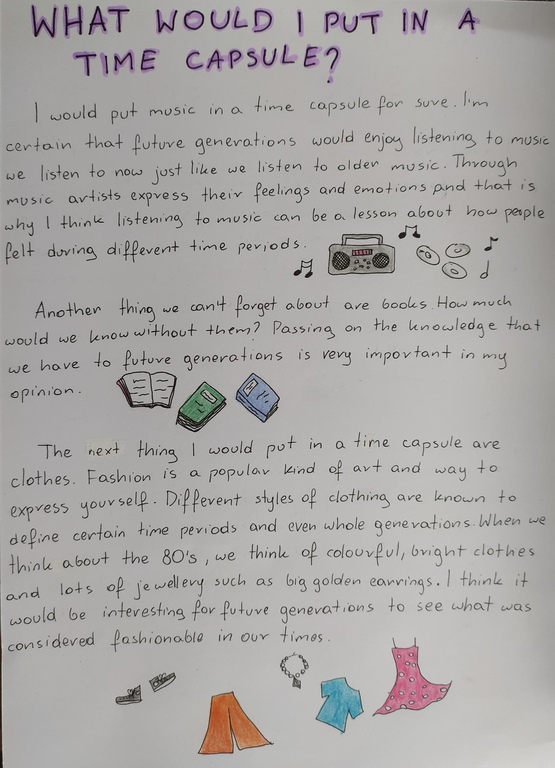 WHAT WOULD I PUT IN A
TIME CAPSULE?
I would put music in a time capsule for sure. I'm
certain that future generations would enjoy listening to music
we listen to now just like we listen to older music. Through
music artists express their feelings and emotions and that is
why I think listening to music can be a lesson about how people
felt during different time periods.
Another thing we can't forget about are books. How much
would we know without them? Passing on the knowledge that
we have to future generations is very important in my
opinion.
The next thing I would put in a time capsule are
clothes. Fashion is a popular kind of art and way to
express yourself. Different styles of clothing are known to
define certain time periods and even whole generations. When we
think about the 80's, we think of colourful, bright clothes
and lots of jewellery such as big golden earrings. I think it
would be interesting for future generations to see what was
considered fashionable in our times.